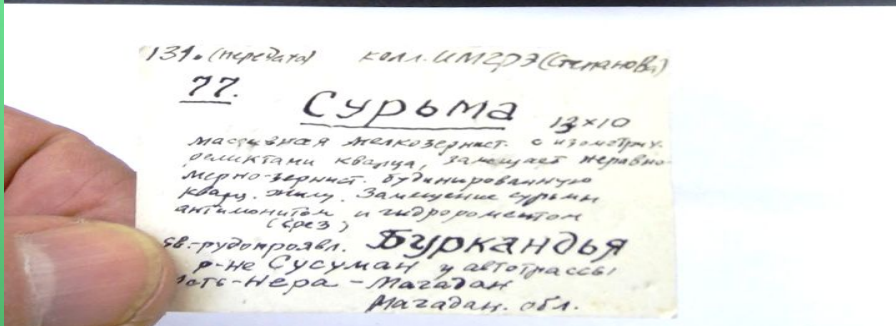 131. (передато) колл. ИМГРЭ (Степанова)
77.
Сурьма 13×10
массивная мелкозернист. с изометрич.
реликтами кварца, замещает неравно-
мерно-зернист. будинированную
кварц. жилу. Замещение сурьмы
антимонитом и гидроромеитом
(срез)
рудопроявл. Бурканд­ья
р-не Сусуман у автотрассы
Нера - Магадан
Магадан. обл.